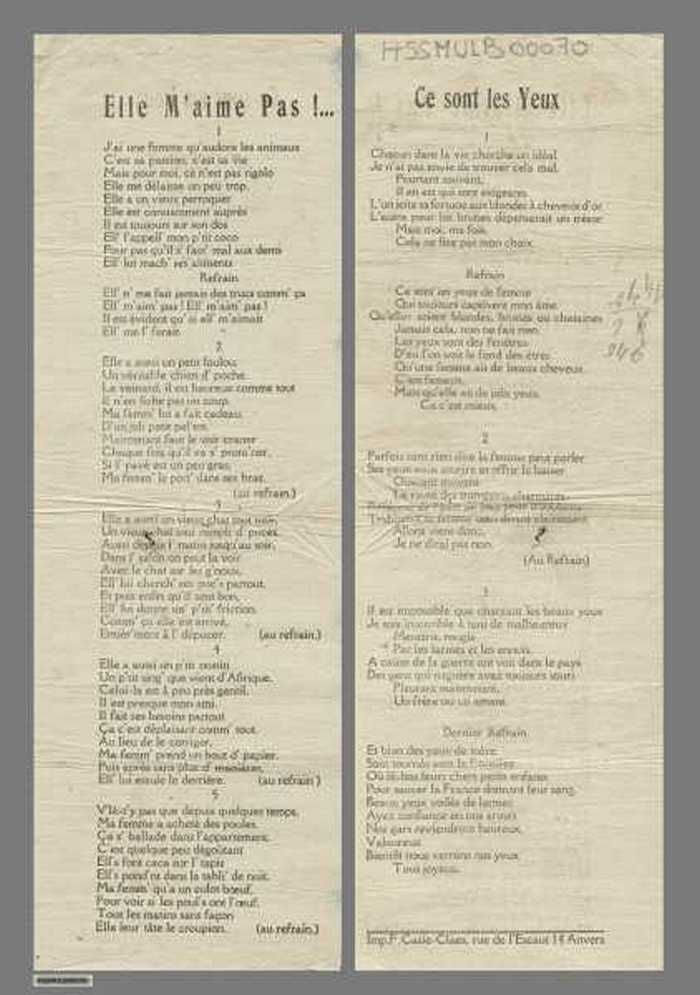 Elle M'aime Pas !...
1
J'ai une femme qu'audore les animaux
C'est sa passion, c'est sa vie
Mais pour moi, ce n'est pas rigolo
Elle me délaisse un peu trop.
Elle a un vieux perroquet
Elle est constamment auprès
Il est toujours sur son dos
Ell' l'appell' mon p'tit coco
Pour pas qu'il s' fass' mal aux dents
Ell' lui mach' ses aliments
Refrain
Ell' n' me fait jamais des trucs comm' ça
Ell' m'aim' pas ! Ell' m'aim' pas !
Il est évident qu' si ell' m'aimait
Ell' me l' ferait
2
Elle a aussi un petit loulou
Un véritable chien d' poche
Le veinard, il est heureux comme tout
Il n'en fiche pas un coup.
Ma femm' lui a fait cadeau
D'un joli petit pal'tot
Maintenant faut le voir crâner
Chaque fois qu'il va s' prom'ner.
Si l' pavé est un peu gras,
Ma femm' le port' dans ses bras.
(au refrain.)
3
Elle a aussi un vieux chat tout noir,
Un vieux chat tout rempli d' puces
Aussi depuis l' matin jusqu'au soir,
Dans l' salon on peut la voir
Avec le chat sur les g'noux,
Ell' lui cherch' ses puc's partout,
Et puis enfin qu'il sent bon,
Ell' lui donne un' p'tit' friction.
Comm' ça elle est arrivé,
Entièr'ment à l' dépucer. (au refrain.)
4
Elle a aussi un p'tit ouistiti
Un p'tit sing' que vient d'Afrique.
Celui-là est à peu près gentil.
Il est presque mon ami.
Il fait ses besoins partout
Ça c'est déplaisant comm' tout.
Au lieu de le corriger,
Ma femm' prend un bout d' papier.
Puis après sans plus d' manières,
Ell' lui essuie le derrière. (au refrain)
5
V'là-t'y pas que depuis quelques temps,
Ma femme a acheté des poules,
Ça s' ballade dans l'appartement,
C'est quelque peu dégoûtant
Ell's font caca sur l' tapis
Ell's pond'nt dans la tabl' de nuit.
Ma femm' qu'a un culot bœuf,
Pour voir si les poul's ont l'œuf,
Tout les matins sans façon
Elle leur tâte le croupion. (au refrain.)
HSSMULB00070
Ce sont les Yeux
1
Chacun dans la vie cherche un idéal
Je n'ai pas envie de trouver cela mal
Pourtant souvent,
Il en est qui sont exigeants
L'un jette sa fortune aux blondes à cheveux d'or
L'autre pour les brunes dépenserait un trésor
Mais moi, ma fois,
Cela ne fixe pas mon choix.
Refrain
Ce sont les yeux de femme
Qui toujours captivent mon âme
Qu'elles soient blondes, brunes ou chataines
Jamais cela, non ne fait rien
Les yeux sont des fenêtres
D'où l'on voit le fond des êtres
Qu'une femme ait de beaux cheveux
C'est fameux,
Mais qu'elle ait de jolis yeux
Ça c'est mieux.
2
Parfois sans rien dire la femme peut parler
Ses yeux vous sourire et offrir le baiser
(Au Refrain)
3
Il est impossible que chacun les beaux yeux
Par les larmes et les ennuis.
A cause de la guerre ont voit dans le pays
Des yeux qui naguère avez toujours souri
Pleurant maintenant,
Un frère ou un amant.
Dernier Refrain
Et bien des yeux de mère
Sont tournés vers la frontière
Où là-bas leurs chers petits enfants
Pour sauver la France donnent leur sang.
Beaux yeux voilés de larmes
Ayez confiance en nos armes
Nos gars reviendront heureux,
Valeureux
Bientôt nous verrons nos yeux
Tous joyeux.
Imp. F. Casse-Claes, rue de l'Escaut 14 Anvers